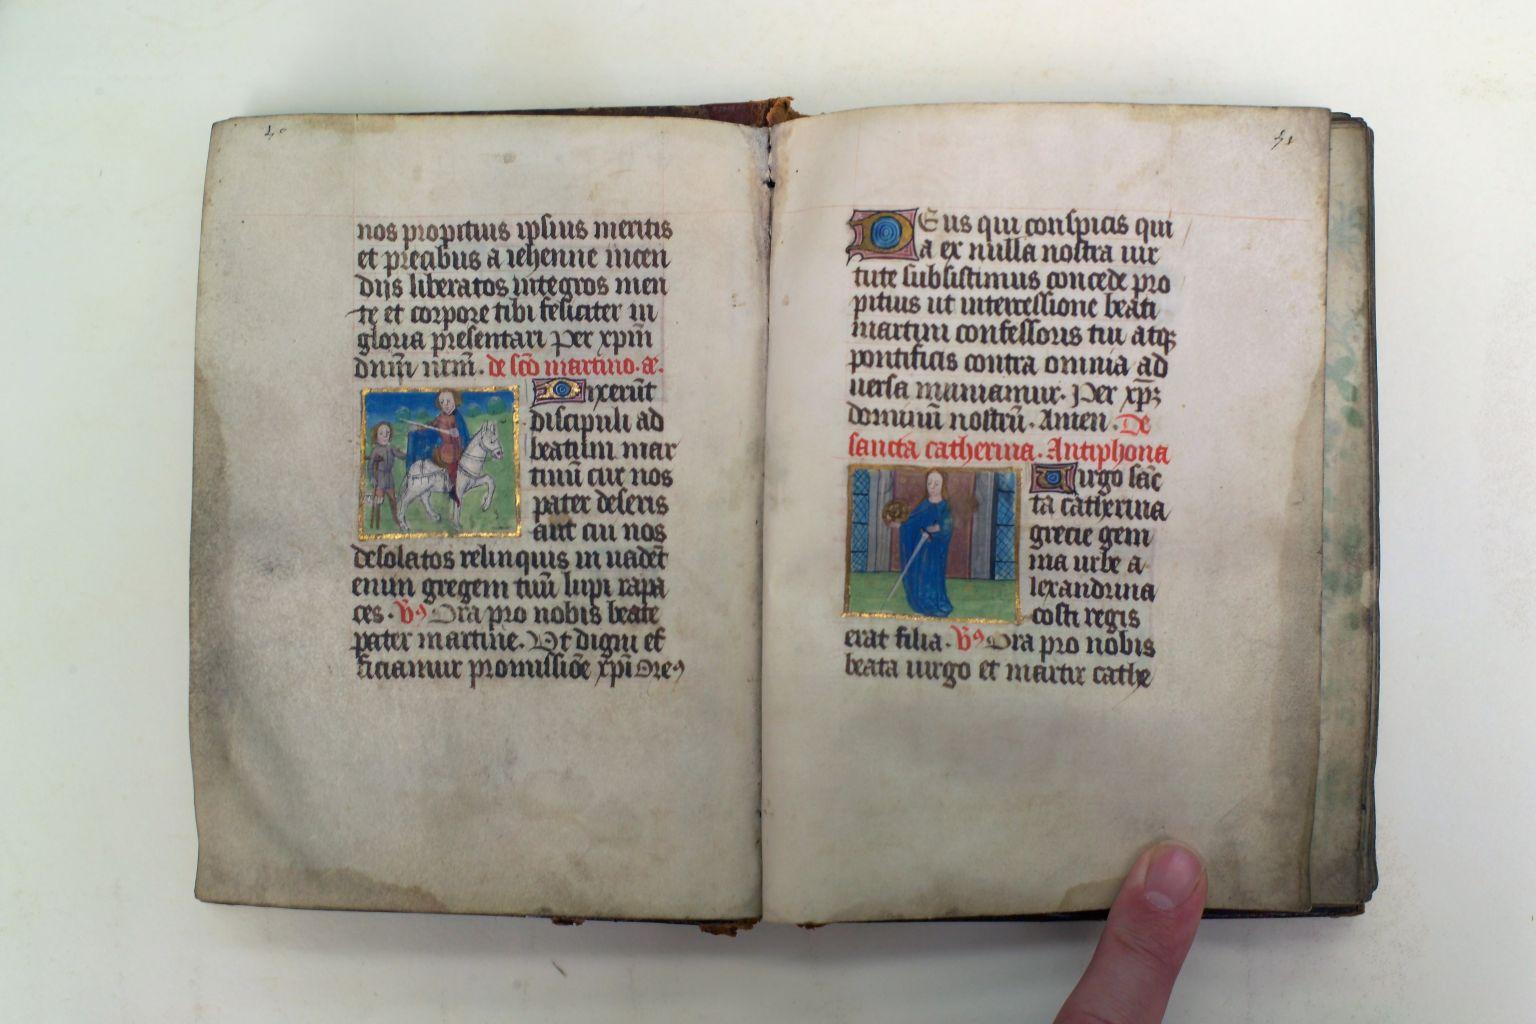 40
nos propitius ipsius meritis
et precibus a iehenne incen
diis liberatos integros men
te et corpore tibi feliciter in
gloria presentari Per xpm̅
dnm̅ nrm̅. de sc̅o martino. ae.
Dixeru̅t
discipuli ad
beatum mar
tinu̅ cur nos
pater deseris
aut cui nos
desolatos relinquis in uade̅t
enim gregem tuu̅ lupi rapa
ces. V̅ꝰ Ora pro nobis beate
pater martine. Vt digni ef
ficiamur promissio̅e xpi̅ Oreꝰ
41
Deus qui conspicis qui
a ex nulla nostra uir
tute subsistimus concede pro
pitius ut intercessione beati
martini confessoris tui atqꝫ
pontificis contra omnia ad
uersa muniamur. Per xp̅ꝫ
dominu̅ nostru̅. Amen. De
sancta catherina. Antiphona
Virgo sa̅c
ta catherina
grecie gem
ma urbe a
lexandrina
costi regis
erat filia. V̅ꝰ Ora pro nobis
beata uirgo et martir cathe